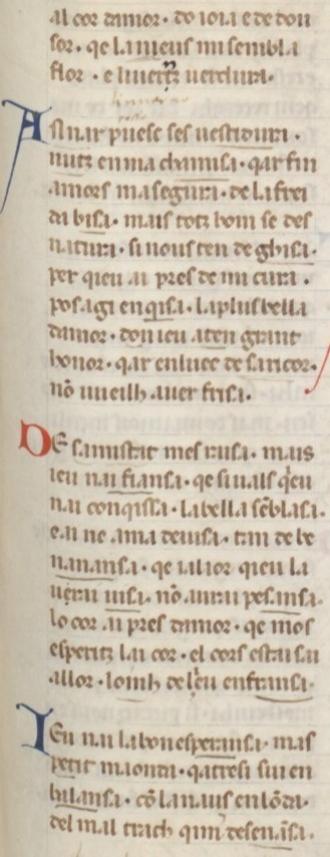 al cor damor · de ioia e de dou
sor · qe la nieus mi sembla
flor · e liuertz uerdura ·
Asnar puesc ses uestidura ·
nutz en ma chamisa · qar fin
amors masegura · de la frei
da bisa · mais totz hom se des
natura · si nous ten de ghisa ·
per qieu ai pres de mi cura ·
pos agi enqisa · la plus bella
damor · don ieu aten grant
honor · qar en luec de sa ricor ·
nō uueilh auer frisa ·
De samistat mes rusa · mais
ieu nai fiansa · qe siuals qieu
nai conqissa · la bella sēblasa ·
e ai ne ama deuisa · tan de be
nanansa · qe ia ior qieu la
ueirai uisa · nō aurai pesansa ·
lo cor ai pres damor · qe mos
esperitz lai cor · el cors estai sai
allor · lonih de leu en fransa ·
Ieu nai la bon esperansa · mas
petit maonda · qatresi sui en
balansa · cō la naus en lōda ·
del mal trach qim desenāsa ·